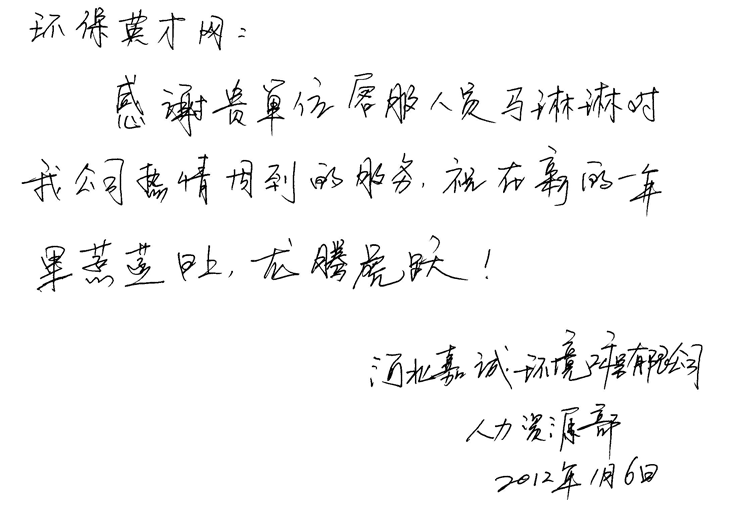 环保英才网：
感谢贵单位客服人员马琳琳对
我公司热情周到的服务，祝在新的一年
里蒸蒸日上，龙腾虎跃！
河北嘉诚环境工程有限公司
人力资源部
2012年1月6日